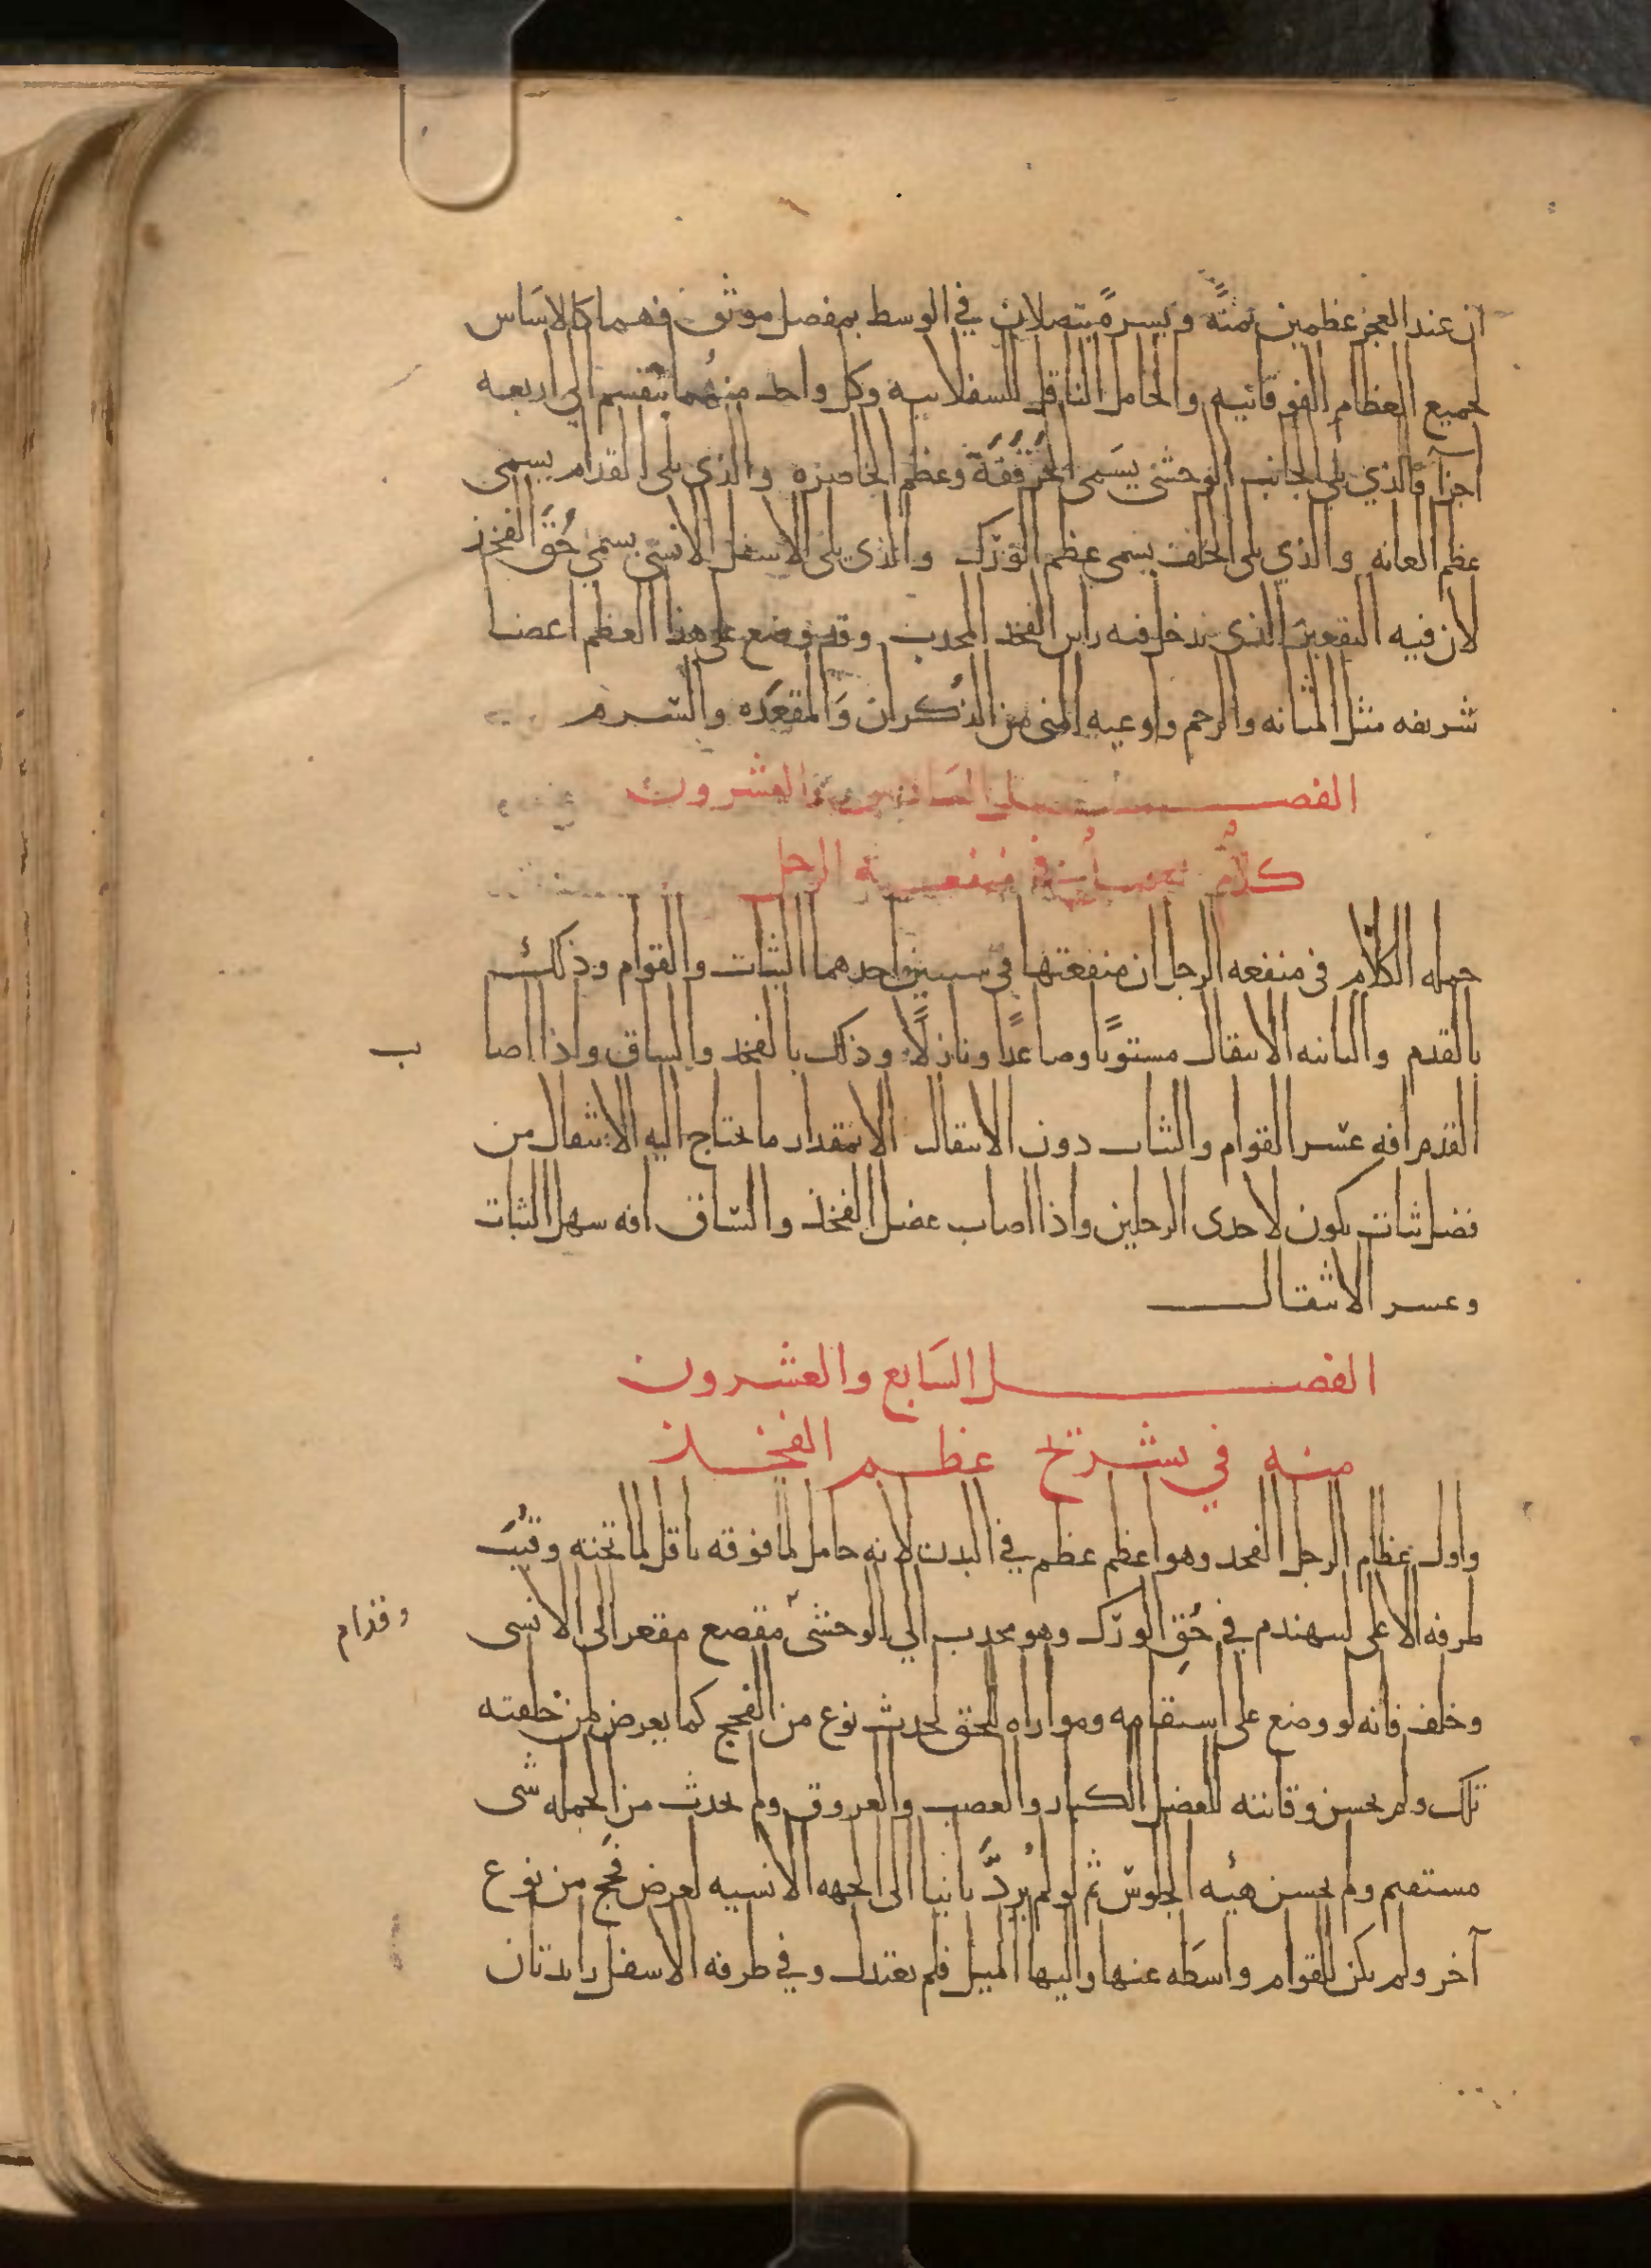 ان عند العجز عظمين يمنةً ويسرةً يتصلان في الوسط بمفصل موثق فهما كالاسَاس
لجميع العظام الفوقانيه والحامل الناقل للسفلانيه وكل واحد منهُما ينقسم الى اربعه
اجزآ فالذي يلي الجانب الوحشى يسَمى الحَرقَفَة وعظم الخاصره والذي يلى القدام يسمى
عظم العانه والذي يلى الخلف يسمى عظم الورك والذي يلى الاسفل الانسى يسمى حُقَّ الفخذ
لان فيه التقعير الذى يدخل فيه راس الفخذ المحدب وقد وضع على هذا العظم اعضا
شريفه مثل المثانه والرحم واوعيه المنى من الذكران وَالمقعَده والسّرم
الفصل السَادس والعشرون
كلامٌ مجمل في منفعة الرجل
جمله الكلام فى منفعه الرجل ان منفعتها فى سببين احدهما الثبات والقوام وذلك
بالقدم والثانيه الانتقال مستويًا وصاعدًا ونازلًا وذلك بالفخذ والساق واذا اصا
ب
القدم افه عسر القوام والثبات دون الانتقال الا بمقدار ما يحتاج اليه الانتقال من
فضل ثبات يكون لاحدى الرجلين واذا اصاب عضل الفخذ والسّاق افه سهل الثبات
وعسر الانتقال
الفصل السَابع والعشرون
منه في تشريح عظم الفخذ
واول عظام الرجل الفخد وهو اعظم عظم في البدن لانه حامل لما فوقه ناقل لما تحته وقُبِّب
طرفه الاعلى ليهندم في حُق الورك وهو محدب الي الوحشى مقصع مقعر الى الانسى
وقدام
وخلف فانه لو وضع على استقامه وموازاه للحق لحدث نوع من الفحج كما يعرض لمن خلقته
تلك ولم يحسن وقايته للعضل الكبار والعصب والعروق ولم يحدث من الجمله شى
مستقيم ولم يحسن هيئه الجلوس ثم لو لم يُردَّ ثانيا الى الجهه الانسيه لعرض فحَج من نوع
آخر ولم يكن للقوام واسطَه عنها واليها الميل فلم يعتدل وفي طرفه الاسفل زايدتان